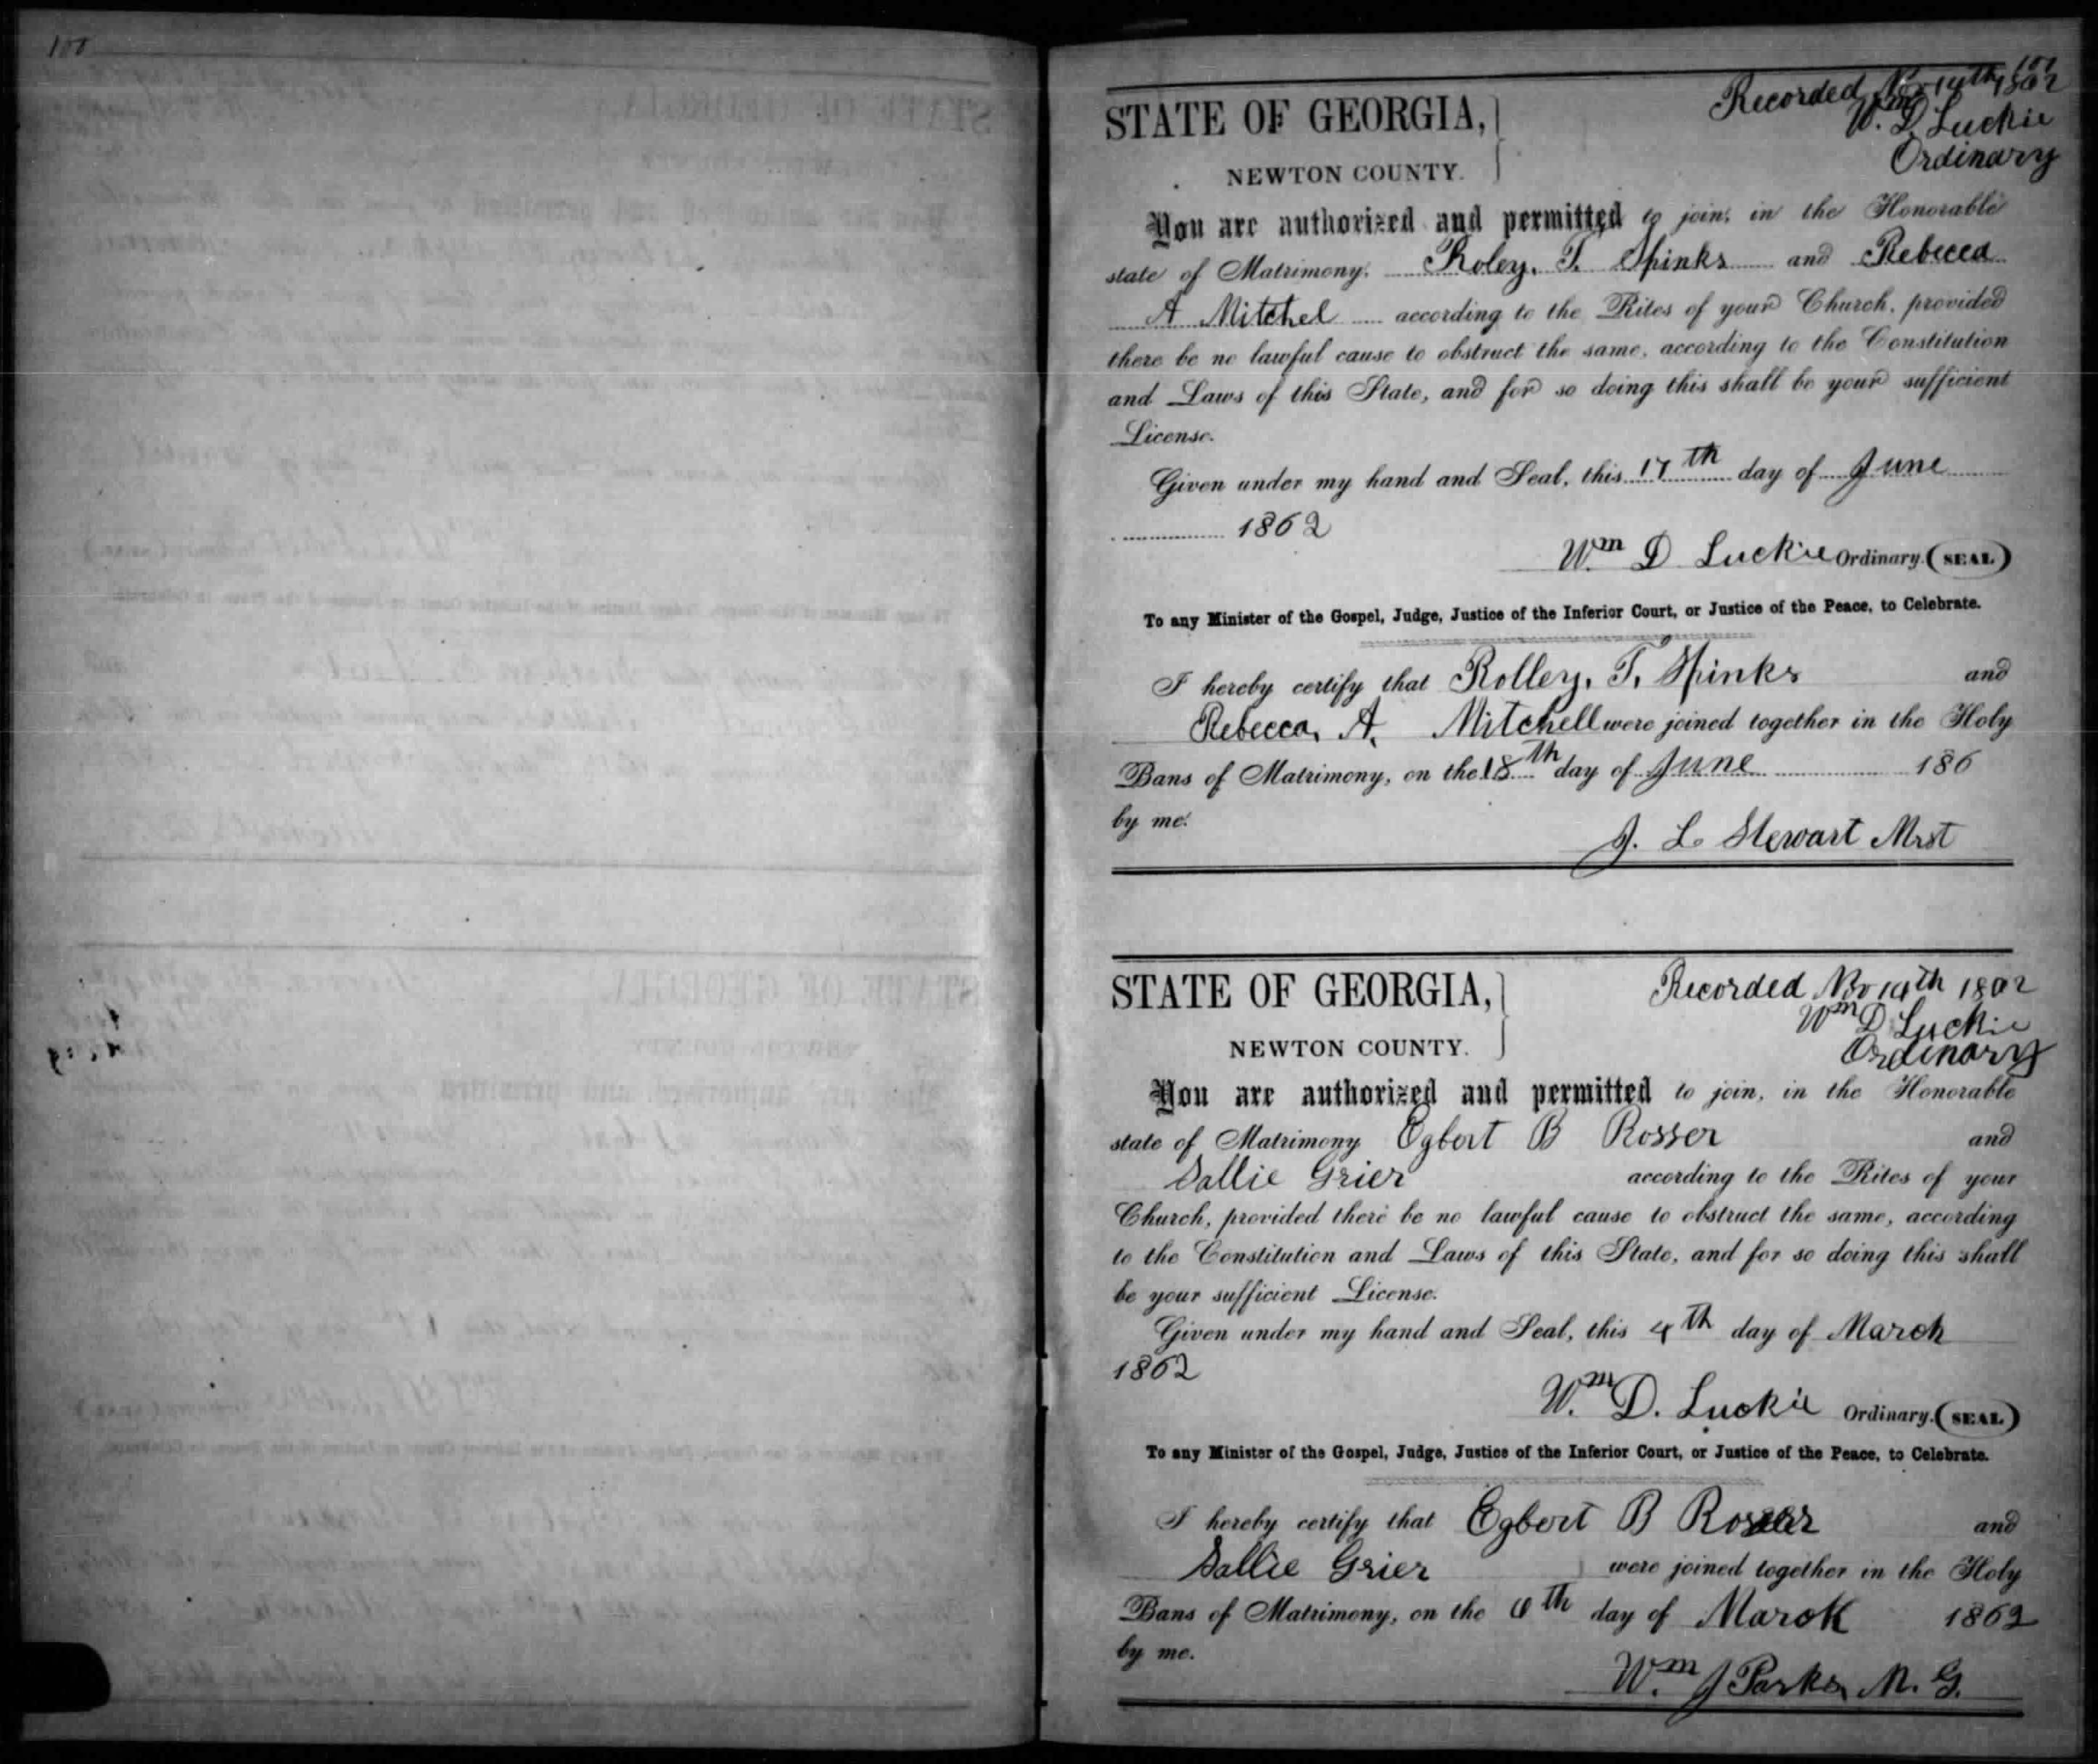 100
101
Recorded Nov 14th 1862
Wm D Luckie
Ordinary
STATE OF GEORGIA,
NEWTON COUNTY.
You are authorized and permitted to join, in the Honorable
state of Matrimony, Roley. T. Spinks and Rebecca
A Mitchel according to the Rites of your Church, provided
there be no lawful cause to obstruct the same, according to the Constitution
and Laws of this State, and for so doing this shall be your sufficient
License.
Given under my hand and Seal, this 17th day of June
1862
Wm D Luckie Ordinary. (SEAL)
To any Minister of the Gospel, Judge, Justice of the Inferior Court, or Justice of the Peace, to Celebrate.
I hereby certify that Rolley. T. Spinks and
Rebecca, A. Mitchell were joined together in the Holy
Bans of Matrimony, on the 18th day of June 186
by me.
J. L Stewart Mrst
STATE OF GEORGIA,
NEWTON COUNTY.
Recorded Nov 14th 1862
Wm D Luckie
Ordinary
You are authorized and permitted to join, in the Honorable
state of Matrimony Egbert B Rosser and
Sallie Grier according to the Rites of your
Church, provided there be no lawful cause to obstruct the same, according
to the Constitution and Laws of this State, and for so doing this shall
be your sufficient License.
Given under my hand and Seal, this 4th day of March
1862
Wm D. Luckie Ordinary. (SEAL)
To any Minister of the Gospel, Judge, Justice of the Inferior Court, or Justice of the Peace, to Celebrate.
I hereby certify that Egbert B Rosser and
Sallie Grier were joined together in the Holy
Bans of Matrimony, on the day of March 1862
by me.
Wm J Parks, M. G.